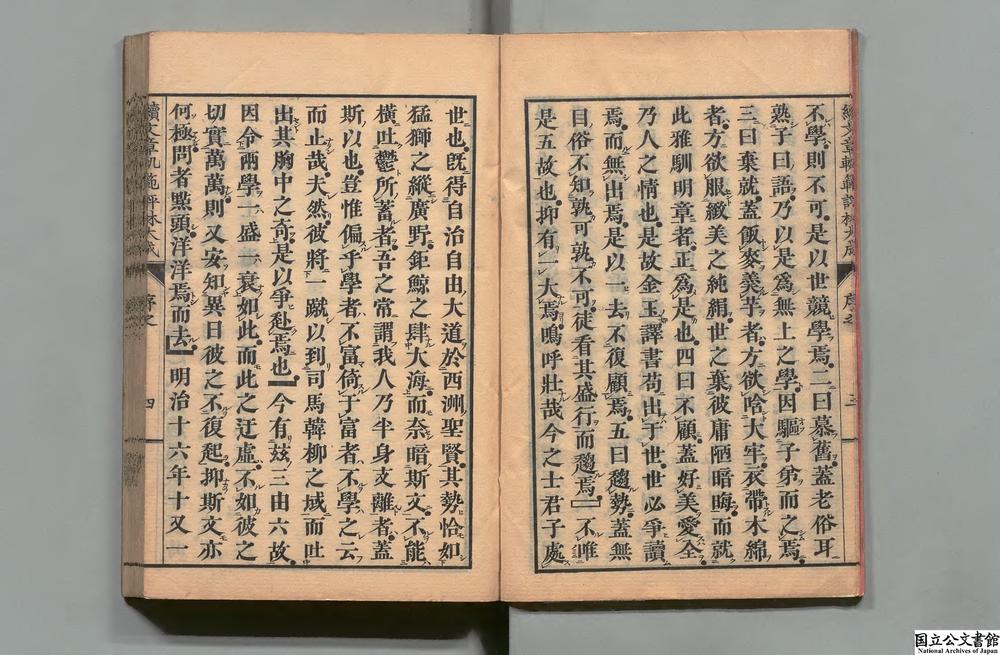 不學則不可是以世競學焉二曰慕舊蓋老俗耳
熟子曰語乃以是爲無上之學因驅子弟而之焉
三曰棄就蓋飯麥羹芋者方欲啥大牢衣帶木綿
者方欲服緻美之純絹世之棄彼庸陋暗晦而就
此雅馴明章者正爲是也四曰不顧蓋好美愛全
乃人之情也是故金玉譯書苟出于世世必爭讀
焉而無出焉是以一去不復顧焉五曰趨勢蓋無
目俗不知孰可孰不可徒看其盛行而趨焉不唯
是五故也抑有一大焉嗚呼壯哉今之士君子處
三
世也既得自治自由大道於西洲聖賢其勢恰如
猛獅之縱廣野鉅鯨之肆大海而奈暗斯文不能
橫吐鬱所蓄者吾之常謂我人乃半身支離者蓋
斯以也豈惟偏乎學者不富倚于富者不學之云
而止哉夫然彼將一蹴以到司馬韓柳之域而吐
出其胸中之奇是以爭赴焉也今有玆三由六故
因令兩學一盛一衰如此而此之迂虛不如彼之
切實萬萬則又安知異日彼之不復起抑斯文亦
何極問者點頭洋洋焉而去明治十六年十又一
續文章軌範評林大成
序之
四
国立公文書館
National Archives of Japan